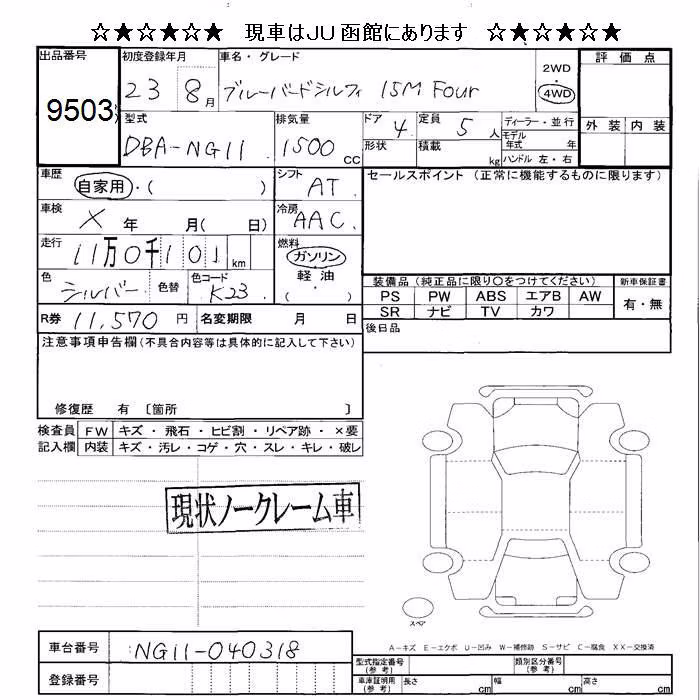 ☆★☆★☆★ 現車はJU函館にあります ☆★☆★☆★
出品番号
9503
初度登録年月
23 8月
車名・グレード
ブルーバードシルフィ 15M Four
2WD
4WD
評価点
外装 内装
型式
DBA-NG11
排気量
1500 CC
ドア 4
定員 5 人
形状
積載 kg
ディーラー・並行
モデル年式 年
ハンドル 左・右
車歴
自家用・( )
シフト
AT
車検
X 年 月( 日)
冷房
AAC
走行
11万0千101 km
燃料
ガソリン
軽油
( )
色
シルバー
色替
色コード
K23
R券 11,570 円
名変期限 月 日
セールスポイント(正常に機能するものに限ります)
装備品(純正品に限り○をつけてください)
PS PW ABS エアB AW
SR ナビ TV カワ
新車保証書
有・無
後日品
注意事項申告欄(不具合内容等は具体的に記入して下さい)
修復歴 有 〔箇所 〕
検査員記入欄
FW キズ・飛石・ヒビ割・リペア跡・×要
内装 キズ・汚レ・コゲ・穴・スレ・キレ・破レ
現状ノークレーム車
スペア
A-キズ E-エクボ U-凹み W-補修跡 S-サビ C-腐食 XX-交換済
車台番号 NG11-040318
登録番号
型式指定番号(参考)
類別区分番号(参考)
車庫証明用(参考) 長さ cm 幅 cm 高さ cm